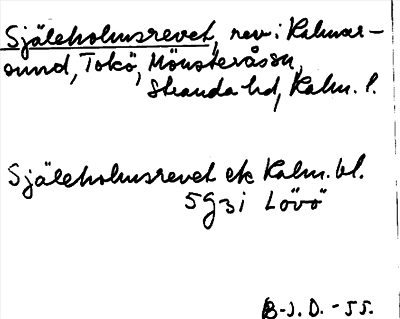 Själeholmsrevet, rev i Kalmar-
sund, Tokö, Mönsterås sn,
Stranda hd, Kalm. l.
Själeholmsrevet ek Kalm. bl.
5g3i Lövö
B-J. D. -55.